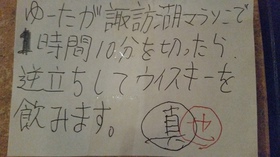 ゆーたが諏訪湖マラソンで
1時間10分を切ったら
逆立ちしてウイスキーを
飲みます。 真也